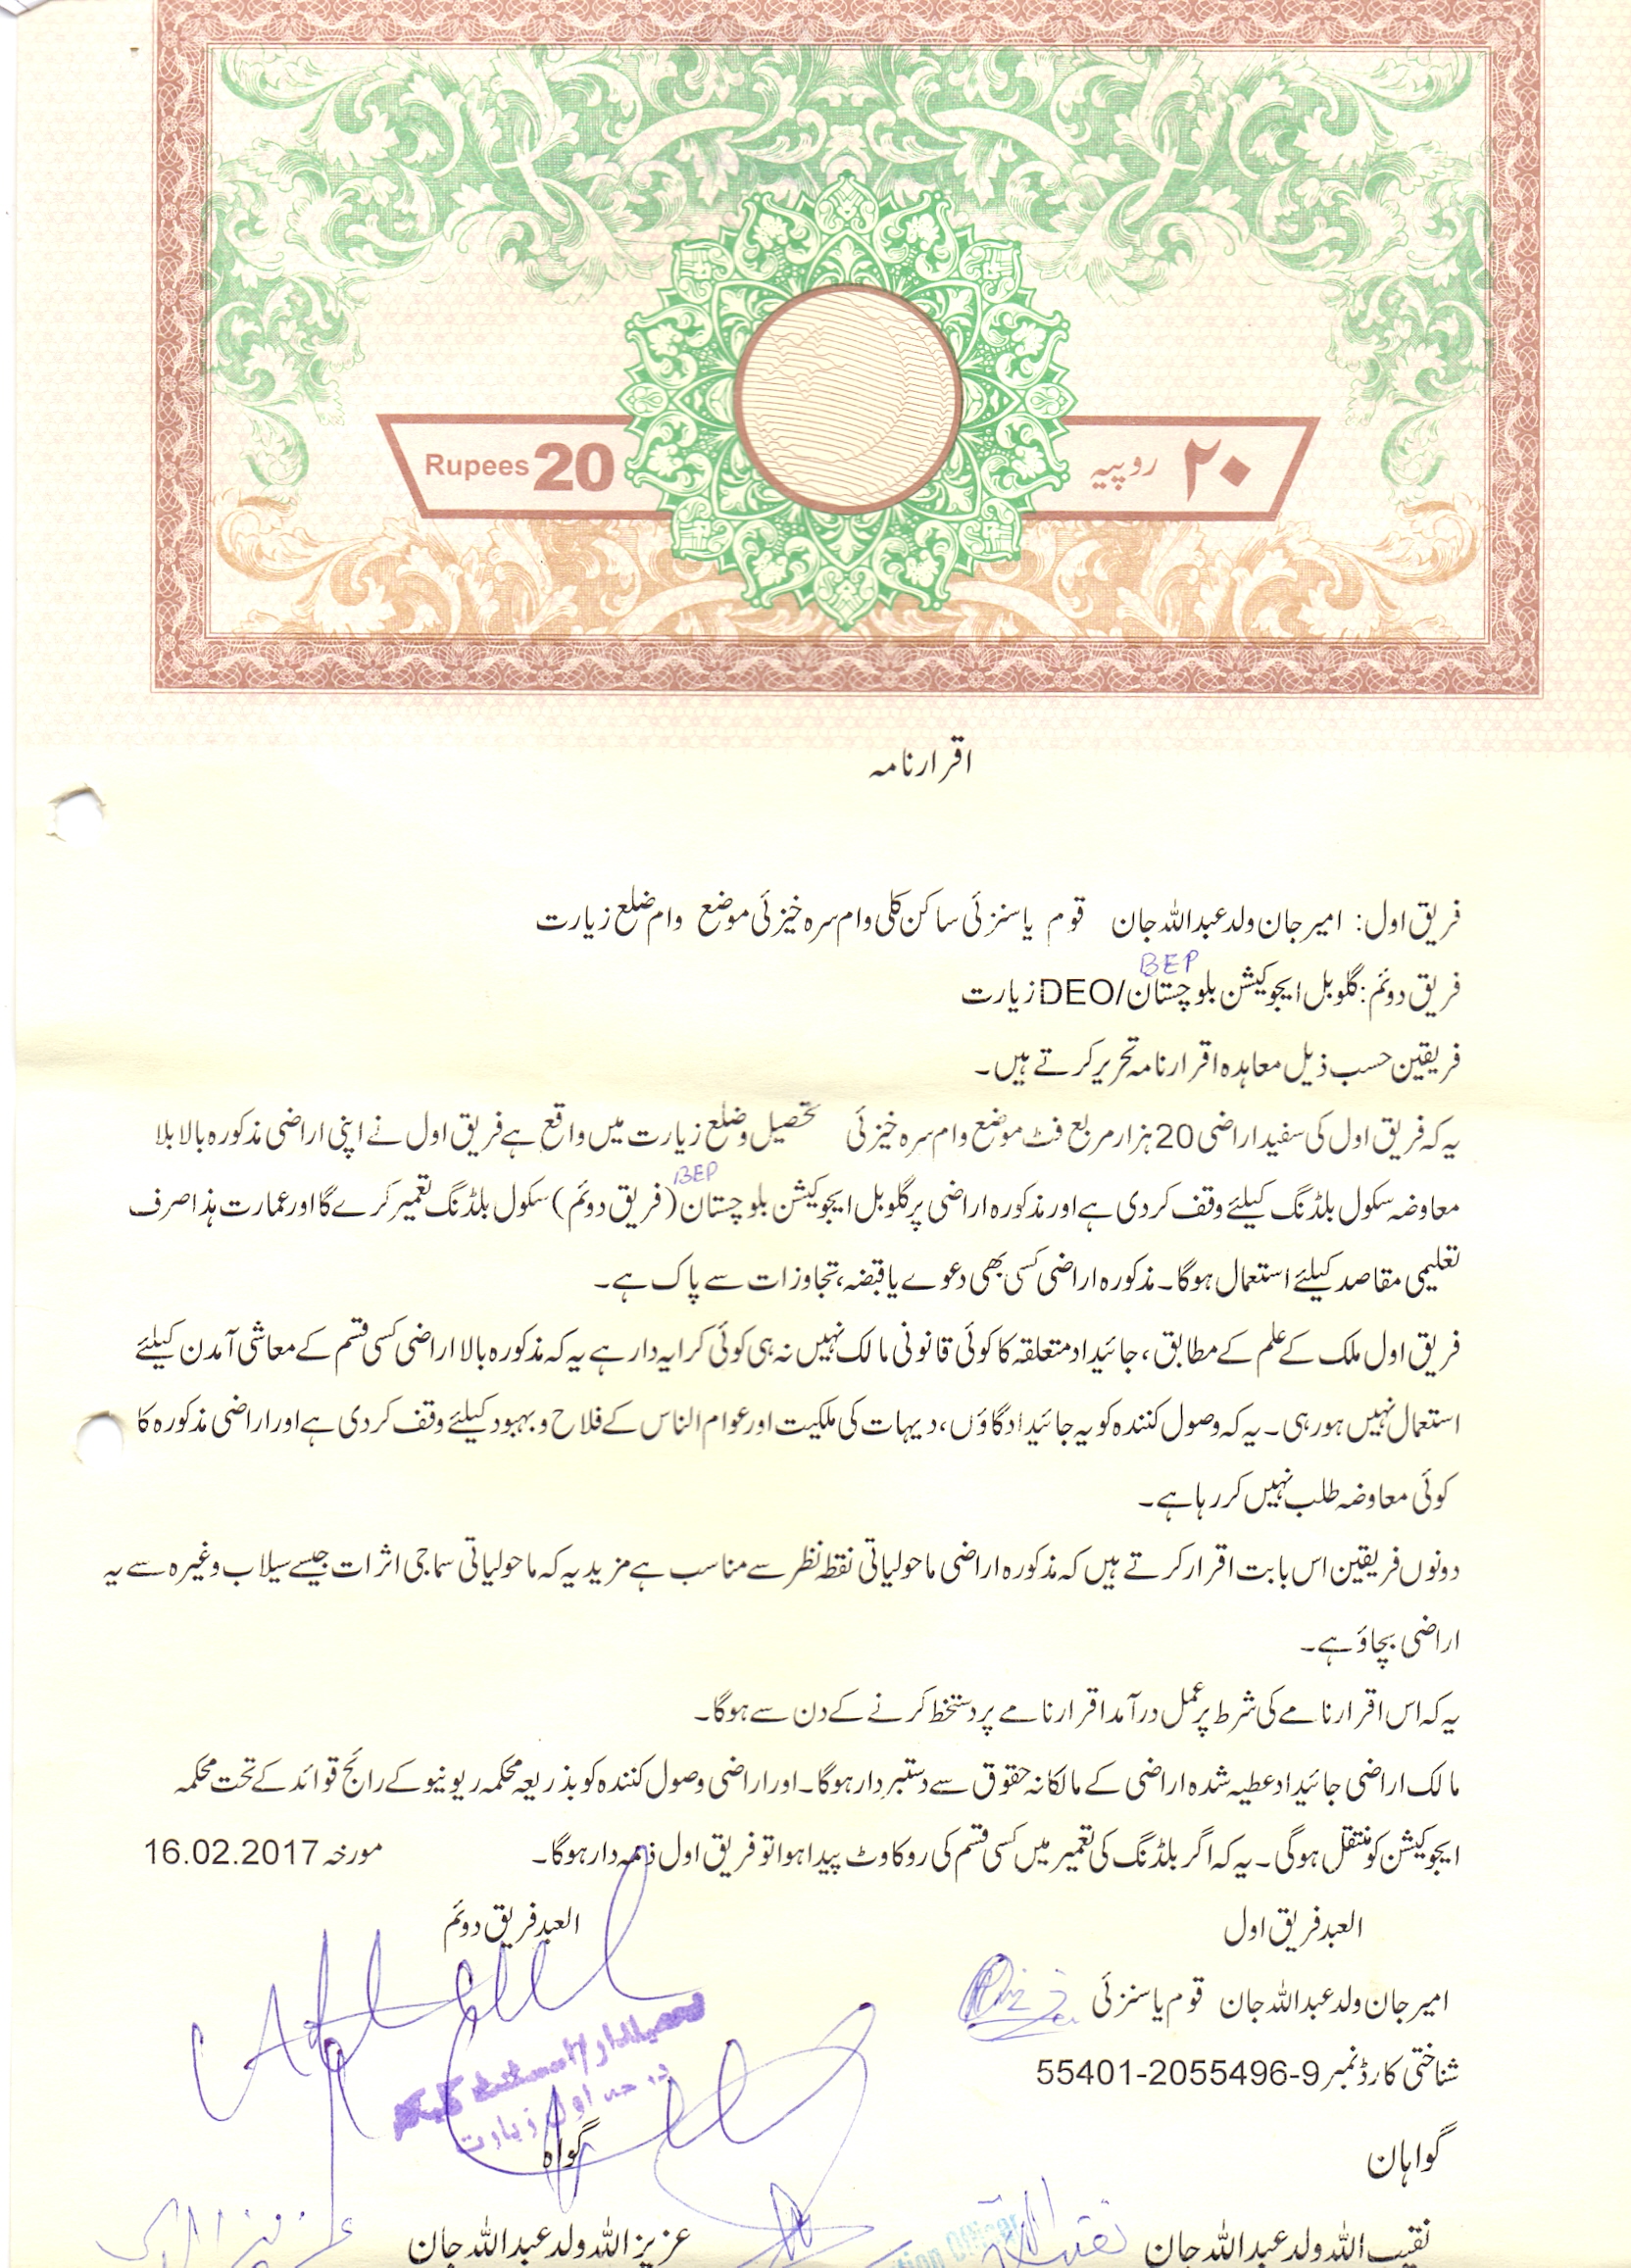 Rupees 20
۲۰ روپیہ
اقرارنامہ
فریق اول: امیر جان ولد عبداللہ جان قوم یاسنزئی ساکن کلی وام سرہ خیزئی موضع وام ضلع زیارت
BEP
فریق دوئم: گلوبل ایجوکیشن بلوچستان/DEO زیارت
فریقین حسب ذیل معاہدہ اقرارنامہ تحریر کرتے ہیں۔
یہ کہ فریق اول کی سفید اراضی 20 ہزار مربع فٹ موضع وام سرہ خیزئی تحصیل و ضلع زیارت میں واقع ہے فریق اول نے اپنی اراضی مذکورہ بالا بلا
BEP
معاوضہ سکول بلڈنگ کیلئے وقف کردی ہے اور مذکورہ اراضی پر گلوبل ایجوکیشن بلوچستان (فریق دوئم) سکول بلڈنگ تعمیر کرے گا اور عمارت ہذا صرف
تعلیمی مقاصد کیلئے استعمال ہوگا۔ مذکورہ اراضی کسی بھی دعوے یا قبضہ، تجاوزات سے پاک ہے۔
فریق اول ملک کے علم کے مطابق، جائیداد متعلقہ کا کوئی قانونی مالک نہیں نہ ہی کوئی کرایہ دار ہے یہ کہ مذکورہ بالا اراضی کسی قسم کے معاشی آمدن کیلئے
استعمال نہیں ہورہی۔ یہ کہ وصول کنندہ کو یہ جائیداد گاؤں، دیہات کی ملکیت اور عوام الناس کے فلاح و بہبود کیلئے وقف کردی ہے اور اراضی مذکورہ کا
کوئی معاوضہ طلب نہیں کررہا ہے۔
دونوں فریقین اس بابت اقرار کرتے ہیں کہ مذکورہ اراضی ماحولیاتی نقطہ نظر سے مناسب ہے مزید یہ کہ ماحولیاتی سماجی اثرات جیسے سیلاب وغیرہ سے یہ
اراضی بچاؤ ہے۔
یہ کہ اس اقرارنامے کی شرط پر عمل درآمد اقرارنامے پر دستخط کرنے کے دن سے ہوگا۔
مالک اراضی جائیداد عطیہ شدہ اراضی کے مالکانہ حقوق سے دستبردار ہوگا۔ اور اراضی وصول کنندہ کو بذریعہ محکمہ ریونیو کے رائج قوائد کے تحت محکمہ
ایجوکیشن کو منتقل ہوگی۔ یہ کہ اگر بلڈنگ کی تعمیر میں کسی قسم کی روکاوٹ پیدا ہوا تو فریق اول ذمہ دار ہوگا۔ مورخہ 16.02.2017
العبد فریق اول العبد فریق دوئم
امیر جان ولد عبداللہ جان قوم یاسنزئی
شناختی کارڈ نمبر 55401-2055496-9
اول زیارت
گواہان گواہ
نقیب اللہ ولد عبداللہ جان عزیز اللہ ولد عبداللہ جان